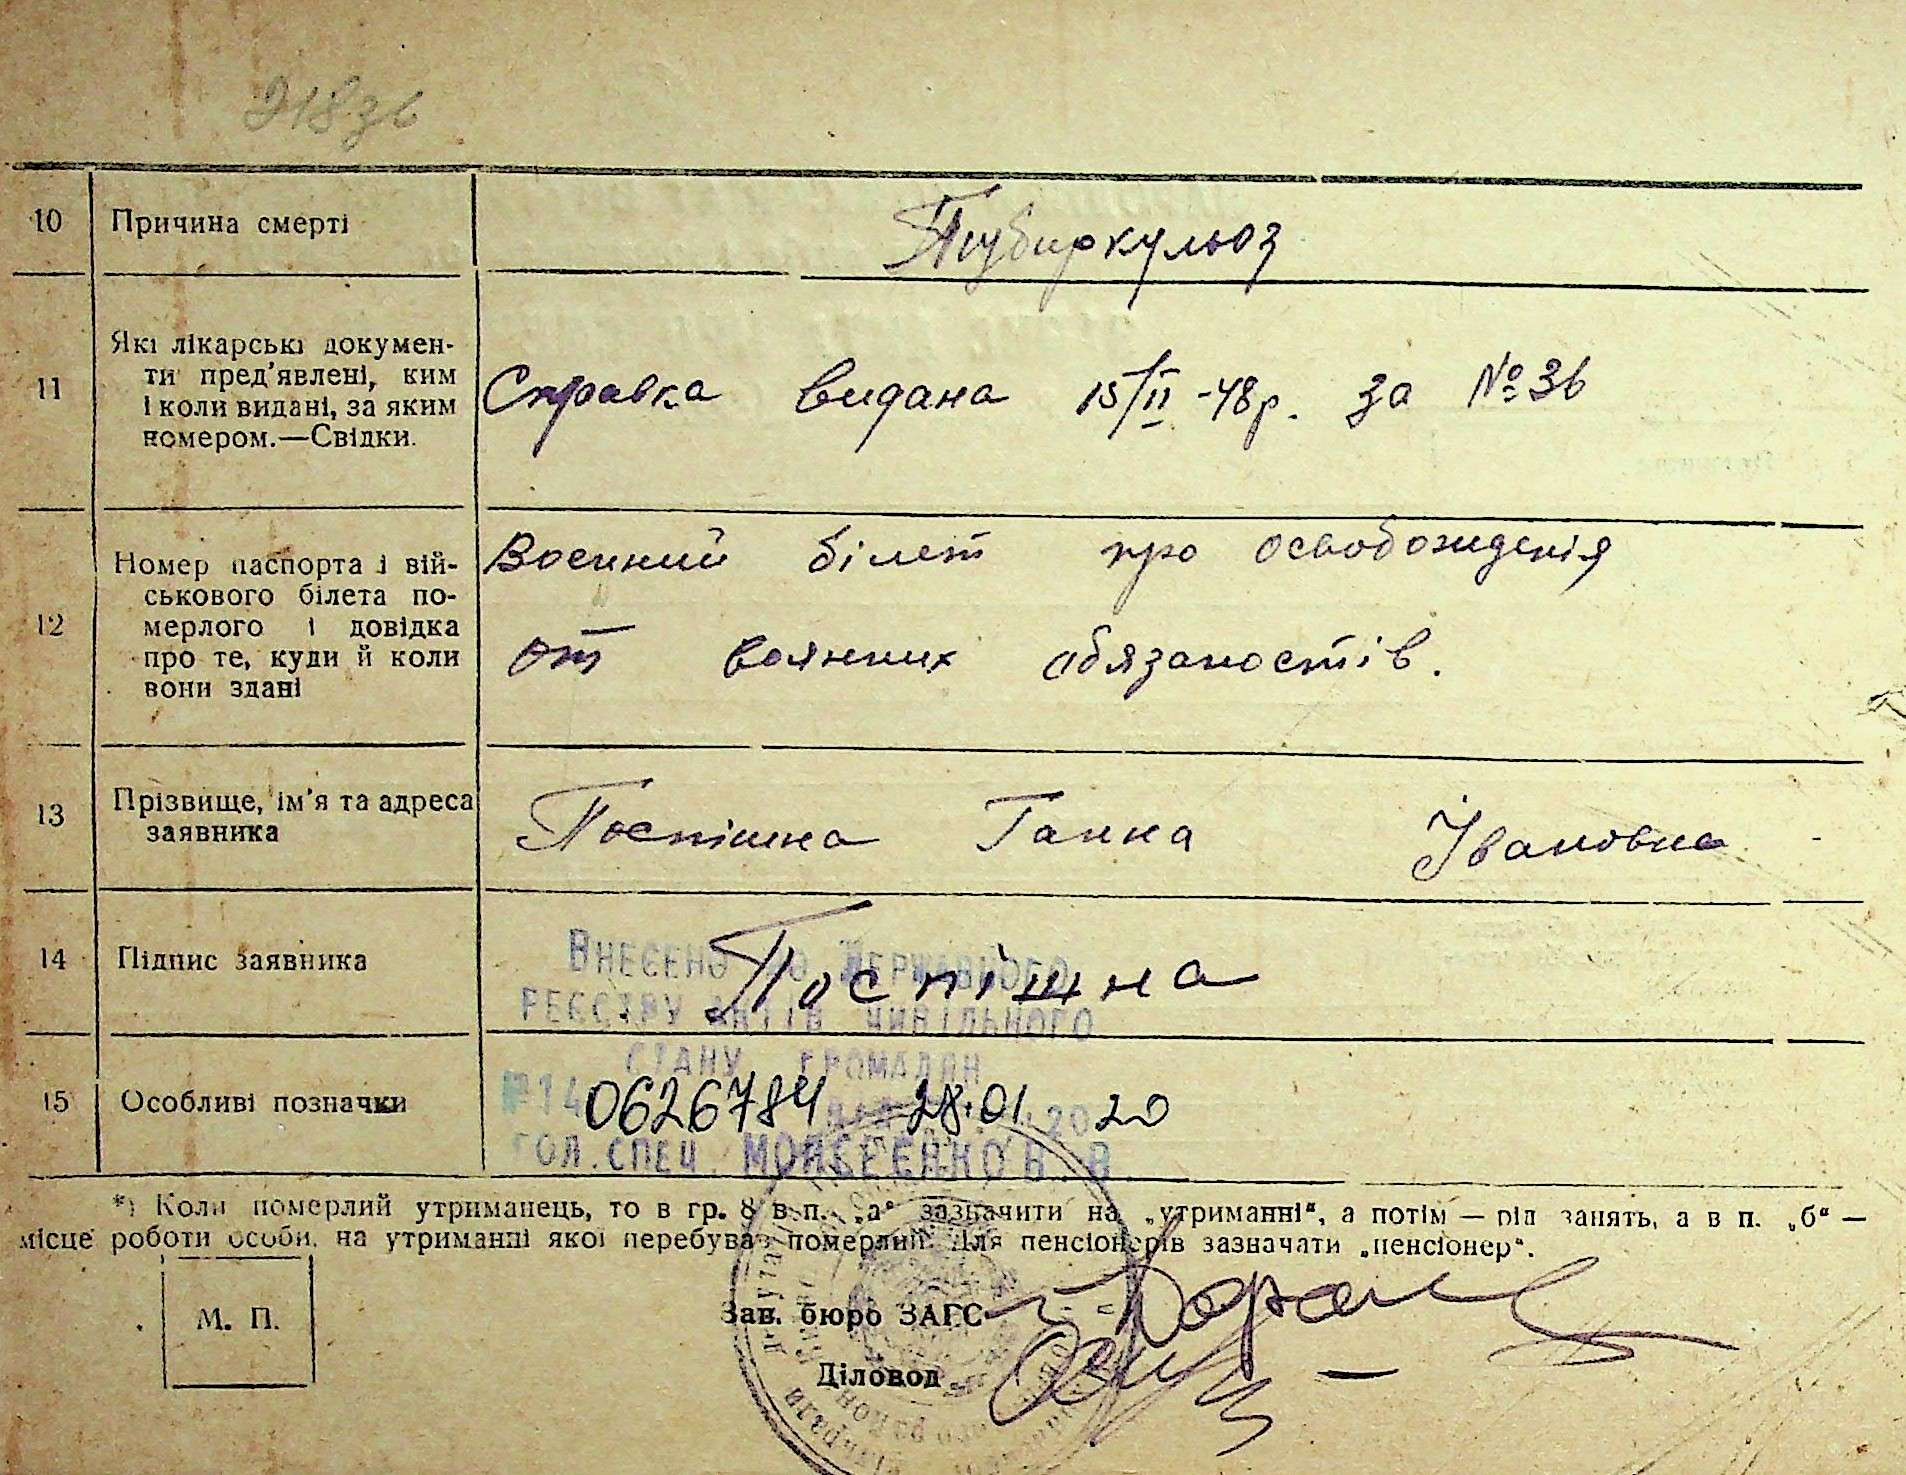 918зв
10 Причина смерті Тубиркульоз
11 Які лікарські докумен-
ти пред'явлені, ким
і коли видані, за яким
номером.—Свідки.
Справка видана 15/II -48р. за №36
12 Номер паспорта і вій-
ськового білета по-
мерлого і довідка
про те, куди й коли
вони здані
Воєнний білет про освобожденія
от воянних обязаностів.
13 Прізвище, ім'я та адреса
заявника
Поспішна Ганна Івановна
14 Підпис заявника Поспішна
ВНЕСЕНО ДО ДЕРЖАВНОГО
РЕЄСТРУ АКТІВ ЦИВІЛЬНОГО
СТАНУ ГРОМАДЯН
15 Особливі позначки №140626784 28.01 2020
ГОЛ.СПЕЦ. МОЙСЕЄНКО В.В
*) Коли померлий утриманець, то в гр. 8 в п. „а“ зазначити на „утриманні“, а потім — рід занять, а в п. „б“ —
місце роботи особи, на утриманні якої перебував померлий. Для пенсіонерів зазначати „пенсіонер“.
М. П.
Зав. бюро ЗАГС
Діловод